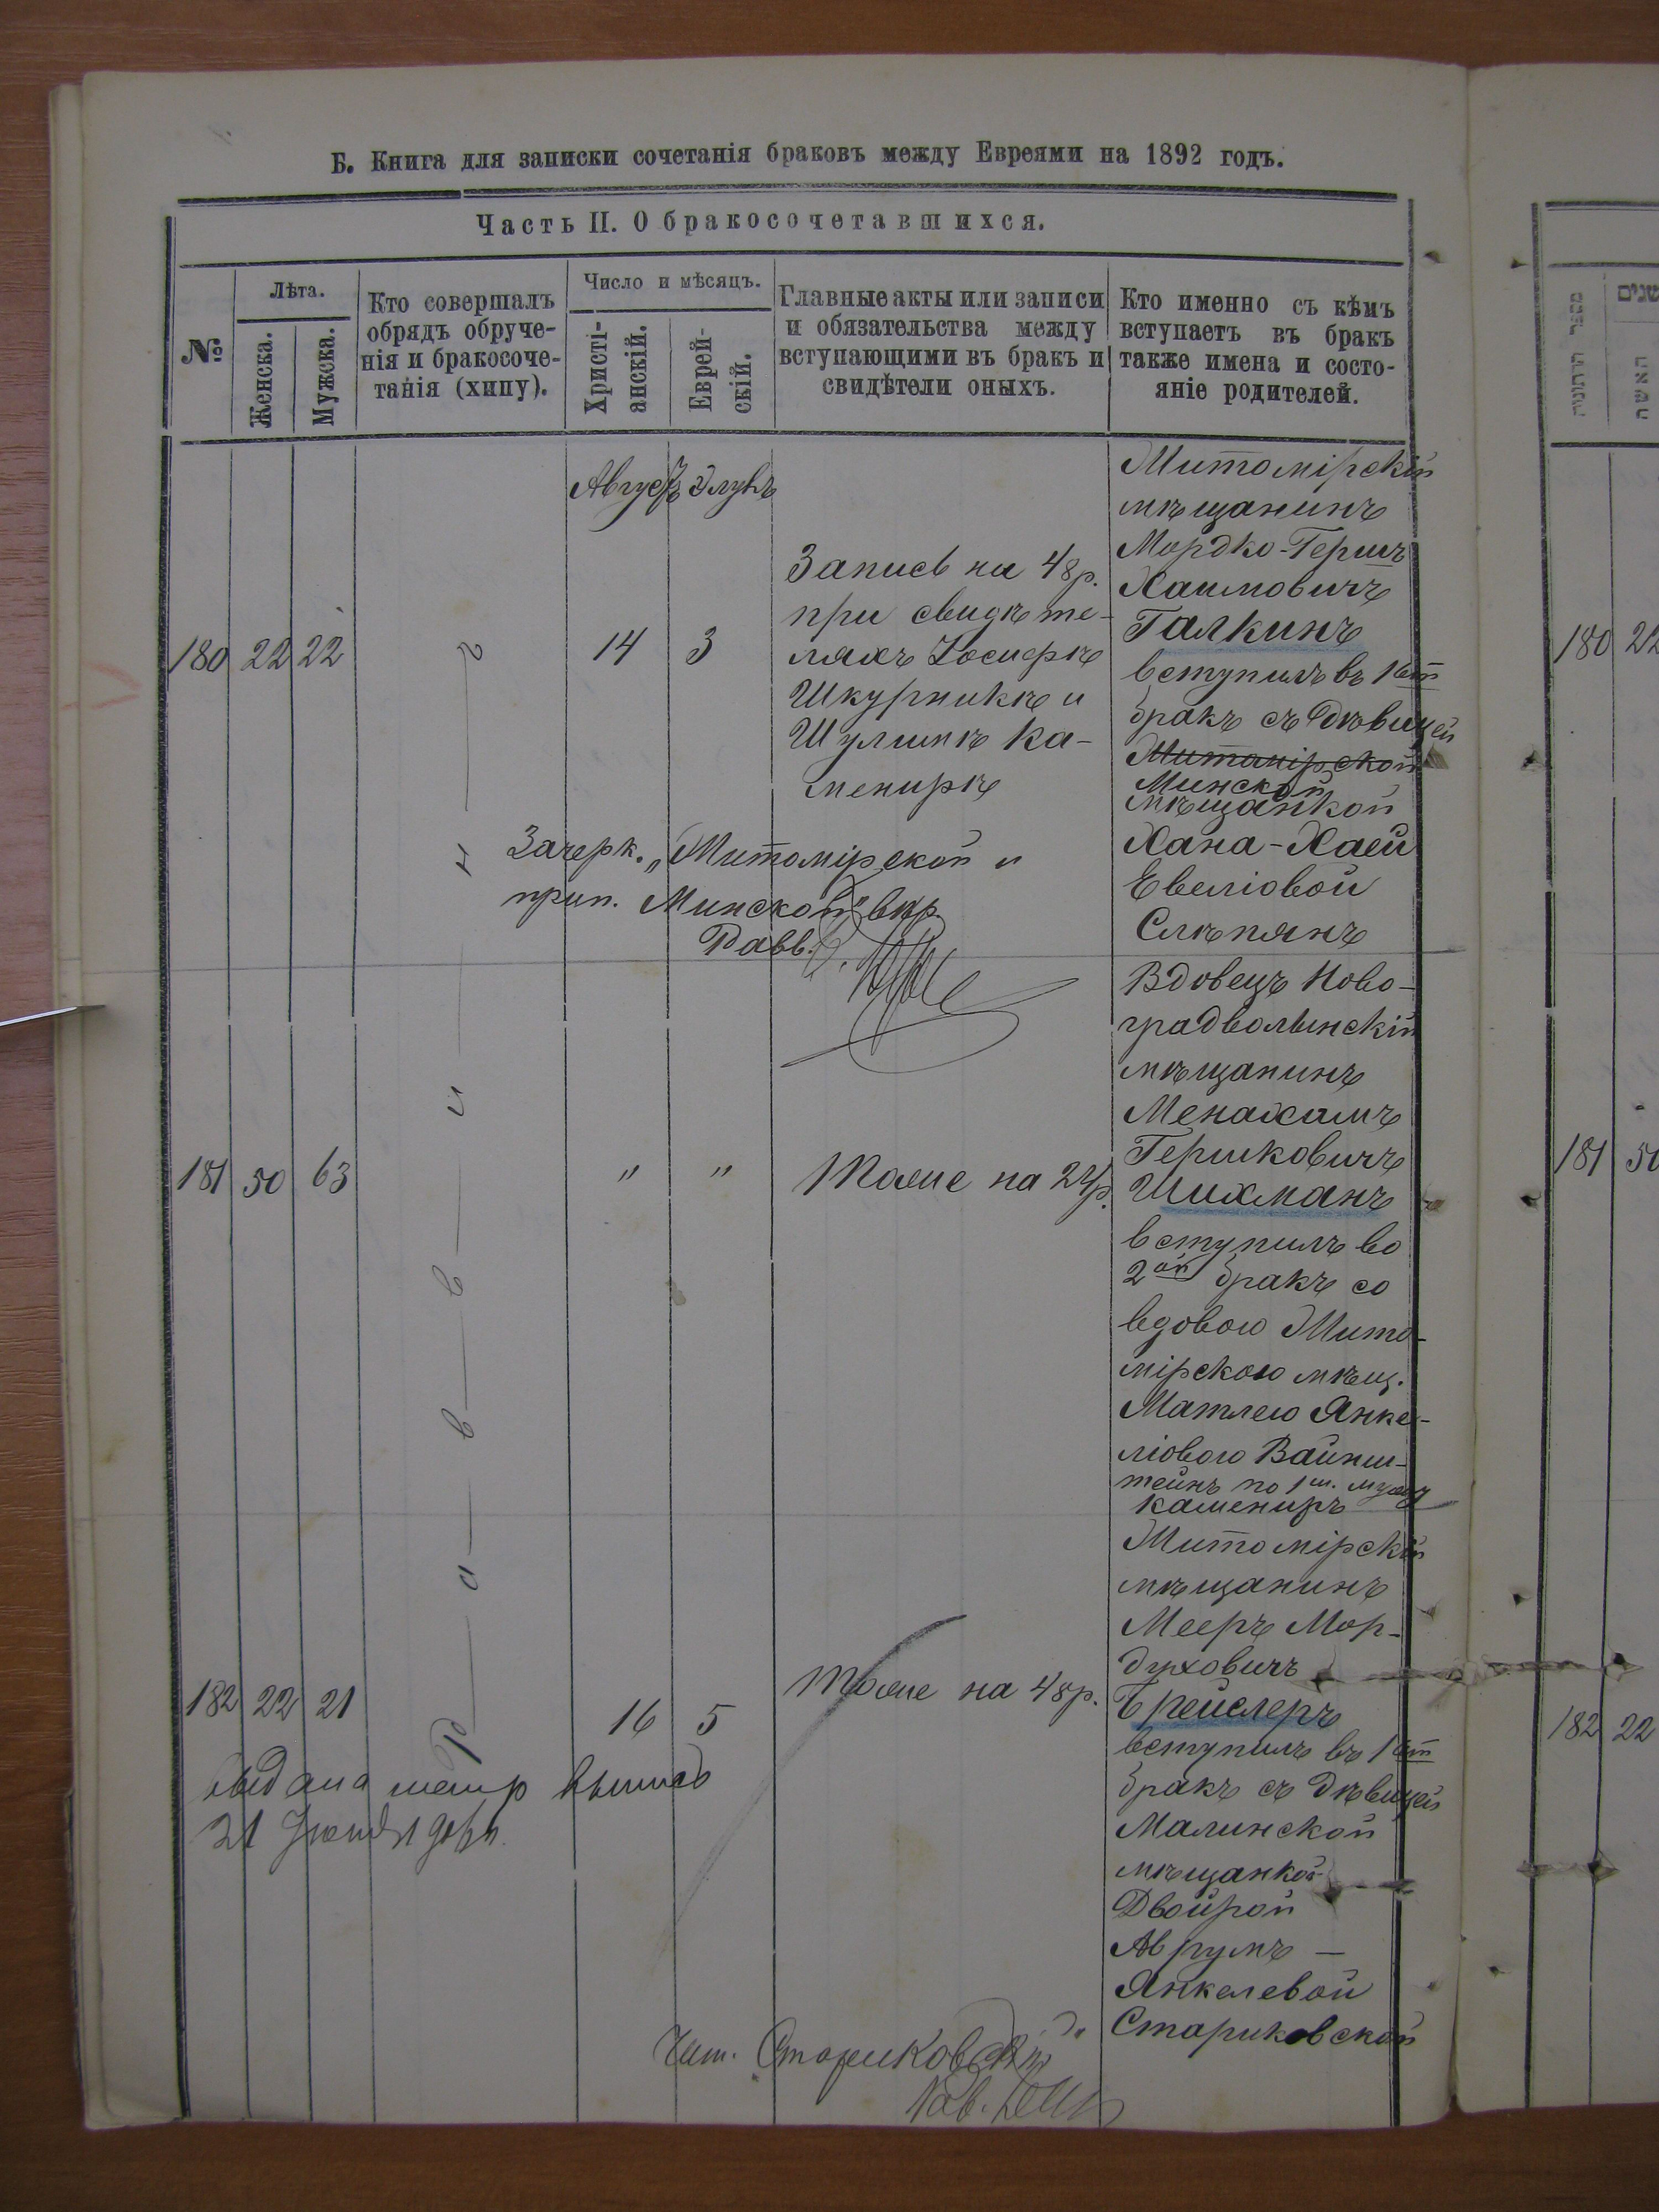 Б. Книга для записки сочетанія браковъ между Евреями на 1892 годъ.
Часть II. О бракосочетавшихся.
№
Лѣта.
Женска.
Мужска.
Кто совершалъ
обрядъ обруче-
нія и бракосоче-
танія (хипу).
Число и мѣсяцъ.
Христі-
анскій.
Еврей-
скій.
Главные акты или записи
и обязательства между
вступающими въ бракъ и
свидѣтели оныхъ.
Кто именно съ кѣмъ
вступаетъ въ бракъ
также имена и состо-
яніе родителей.
Августъ Элулъ
180 22 22
14 3
Запись на 48 р.
при свидѣте-
ляхъ Іосифѣ
Шкурникѣ и
Шулимѣ Ка-
менирѣ
Житомірскій
мѣщанинъ
Мордко-Гершъ
Хаимовичъ
Галкинъ
вступилъ въ 1ый
бракъ съ дѣвицей
Житомірской
Минской
мѣщанкой
Хана-Хаей
Евеліовой
Слѣпянъ
Зачерк. „Житомірской и
прип. Минской" вѣр.
Равв.
Р а в в и н ъ
181 50 63
" "
Тоже на 24 р.
Вдовецъ Ново-
градволынскій
мѣщанинъ
Менахамъ
Гершковичъ
Шихманъ
вступилъ во
2ой бракъ со
вдовою Жито-
мірскою мѣщ.
Матлею Янке-
ліовою Вайнш-
тейнъ по 1ш. мужу
Камениръ
182 22 21
16 5
Тоже на 48 р.
Житомірскій
мѣщанинъ
Мееръ Мор-
духовичъ
Брейслеръ
вступилъ въ 1ый
бракъ съ дѣвицей
Малинской
мѣщанкой
Двойрой
Аврумъ —
Янкелевой
Стариковской
выдана метр выпись
21
Чит. „Стариковской"
Рав.
180 22
181 50
182 22
מספר החתונה
שנים
האשה